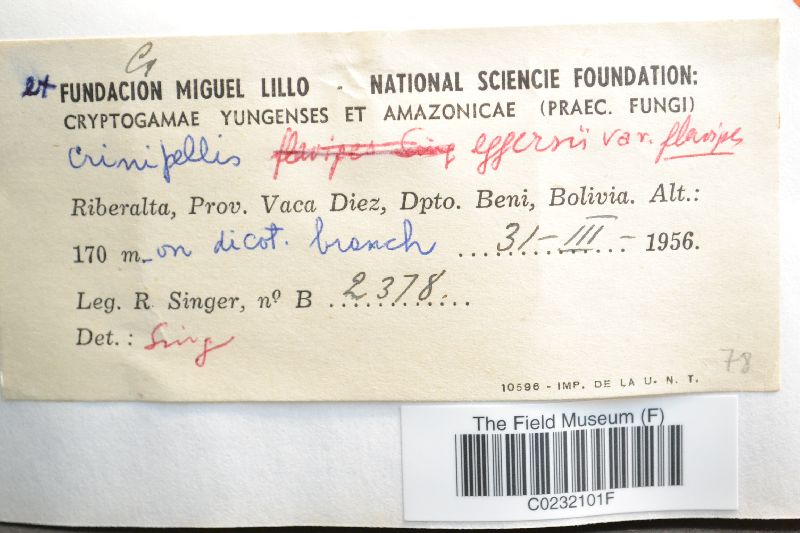 et FUNDACIÓN MIGUEL LILLO - NATIONAL SCIENCIE FOUNDATION:
CRYPTOGAMAE YUNGENSES ET AMAZONICAE (PRAEC. FUNGI)
Crinipellis flavipes Sing eggersii var. flavipes
Riberalta, Prov. Vaca Diez, Dpto. Beni, Bolivia. Alt.:
170 m. on dicot. branch 31-III- 1956.
Leg. R. Singer, nº B 2378.
Det.: Sing
78
10596 - IMP. DE LA U. N. T.
The Field Museum (F)
C0232101F